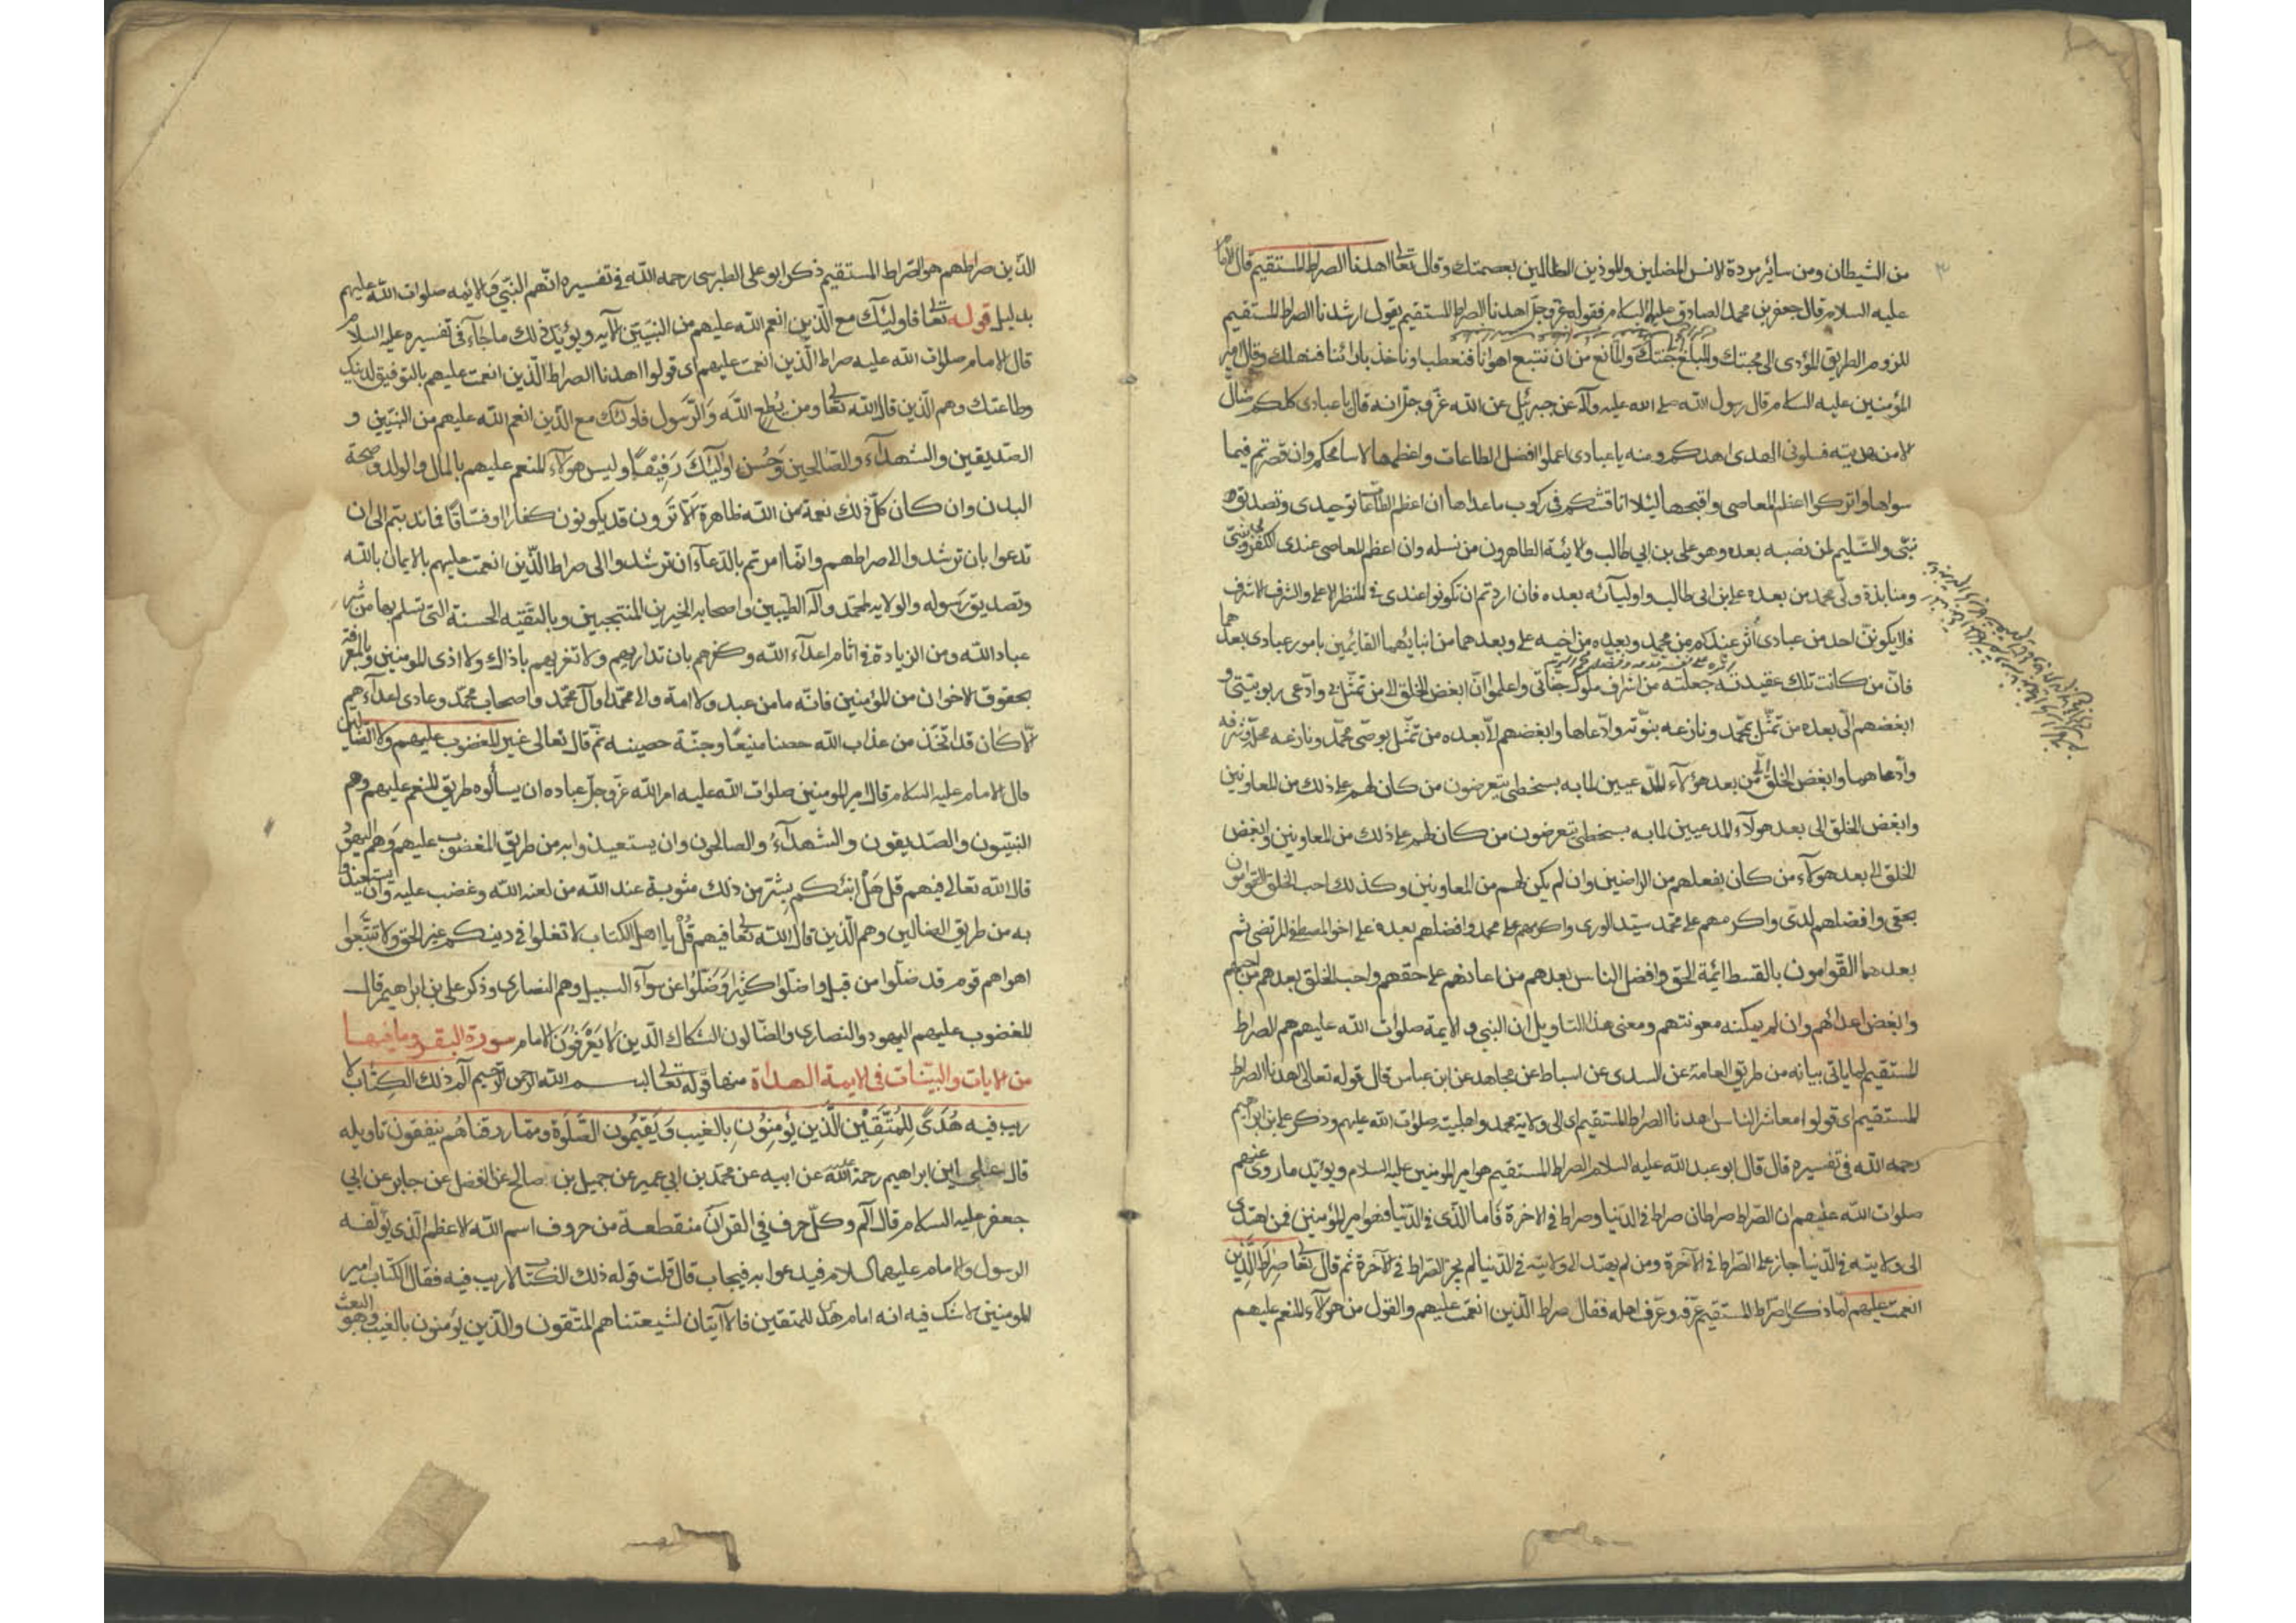 من الشيطان ومن ساير مردة الانس المضلين والموذين الظالمين بعصمتك وقال تعالى اهدنا الصراط المستقيم قال الامام
عليه السلام قال جعفر بن محمد الصادق عليه السلام فقوله عز وجل اهدنا الصراط المستقيم يقول ارشدنا الصراط المستقيم
للزوم الطريق المؤدى الى محبتك والمبلغ الى جنتك والمانع من ان نتبع اهوانا فنعطب او ناخذ باراءنا فنهلك وقال امير
المؤمنين عليه السلام قال رسول الله صلى الله عليه وآله عن جبرئيل عن الله عز وجل انه قال يا عبادى كلكم ضال
الا من هديته فسلونى الهدى اهدكم ومنه يا عبادى اعملوا افضل الطاعات واعظمها لاسامحكم وان قصرتم فيما
سواها واتركوا اعظم المعاصى واقبحها ليلا اناقشكم فى ركوب ما عداها ان اعظم الطاعات توحيدى وتصديق
نبيى والتسليم لمن نصبه بعده وهو على بن ابى طالب والائمة الطاهرون من نسله وان اعظم المعاصى عندى الكفر بى وبنبيى
ومنابذة ولى محمد من بعده على بن ابى طالب واوليائه بعده فان اردتم ان تكونوا عندى فى المنظر الاعلى والشرف الاشرف
فلا يكونن احد من عبادى آثر عندكم من محمد وبعده من اخيه على وبعدهما من ابنائهما القائمين بامور عبادى بعدهما
فان من كانت تلك عقيدته جعلته من اشراف ملوك جنانى واعلموا ان ابغض الخلق الى من تمثل بى وادعى ربوبيتى و
ابغضهم الى بعده من تمثل بمحمد ونازعه بنوته وادعاها وابغضهم الى بعده من تمثل بوصى محمد ونازعه محله وشرفه
وادعاهما وابغض الخلق الى من بعد هؤلاء المدعيين لما به بسخطى يتعرضون من كان لهم على ذلك من المعاونين
وابغض الخلق الى بعد هولاء المدعيين لما به بسخطى يتعرضون من كان لهم على ذلك من المعاونين وابغض
الخلق الى بعد هولاء من كان بفعلهم من الراضين وان لم يكن لهم من المعاونين وكذلك احب الخلق الى القوامون
بحقى وافضلهم لدى واكرمهم على محمد سيد الورى واكرمهم على محمد وافضلهم بعده على اخو المصطفى المرتضى ثم
بعدهما القوامون بالقسط ائمة الحق وافضل الناس بعدهم من اعانهم على حقهم واحب الخلق بعدهم من احبهم
وابغض اعدائهم وان لم يمكنه معونتهم ومعنى هذا التاويل ان النبى والايمة صلوات الله عليهم هم الصراط
المستقيم لما ياتى بيانه من طريق العامة عن السدى عن اسباط عن مجاهد عن ابن عباس قال قوله تعالى اهدنا الصراط
المستقيم اى قولوا معاشر الناس اهدنا الصراط المستقيم اى الى ولاية محمد واهلبيته صلوات الله عليهم وذكر على بن ابراهيم
رحمه الله فى تفسيره قال قال ابو عبد الله عليه السلام الصراط المستقيم هو امير المومنين عليه السلام ويوايد ما روى عنهم
صلوات الله عليهم ان الصراط صراطان صراط فى الدنيا وصراط فى الاخرة فاما الذى فى الدنيا فهو امير المؤمنين فمن اهتدى
الى ولايته فى الدنيا جاز على الصراط فى الآخرة ومن لم يهتد الى ولايته فى الدنيا لم يجز الصراط فى الآخرة ثم قال تعالى صراط الذين
انعمت عليهم لما ذكر الصراط المستقيم عرفه وعرف اهله فقال صراط الذين انعمت عليهم والقول من هولاء المنعم عليهم
الذين صراطهم هو الصراط المستقيم ذكر ابو على الطبرسى رحمه الله فى تفسيره انهم النبى والائمه صلوات الله عليهم
بدليل قوله تعالى فاوليك مع الذين انعم الله عليهم من النبيين الآيه ويؤيد ذلك ما جاء فى تفسيره عليه السلام
قال الامام صلوات الله عليه صراط الذين انعمت عليهم اى قولوا اهدنا الصراط الذين انعمت عليهم بالتوفيق لدينك
وطاعتك وهم الذين قال الله تعالى ومن يطع الله والرسول فاولئك مع الذين انعم الله عليهم من النبيين و
الصديقين والشهداء والصالحين وحسن اوليك رفيقا وليس هولاء المنعم عليهم بالمال والولد وصحة
البدن وان كان كل ذلك نعمة من الله ظاهرة الا ترون قد يكونون كفارا او فساقا فاندبتم الى ان
تدعوا بان ترشدوا الى صراطهم وانما امرتم بالدعاء ان ترشدوا الى صراط الذين انعمت عليهم بالايمان بالله
وتصديق رسوله والولايه لمحمد وآله الطيبين واصحابه الخيرين المنتجبين وبالتقيه الحسنة التى تسلم بها من شر
عباد الله ومن الزيادة فى اثام اعداء الله وكفرهم بان تداريهم ولا تغريهم باذاك ولا اذى المومنين وبالمعرفة
بحقوق الاخوان من المؤمنين فانه ما من عبد ولا امة والى محمدا وآل محمد واصحاب محمد وعادى اعداءهم
الا كان قد اتخذ من عذاب الله حصنا منيعا وجنة حصينه ثم قال تعالى غير المغضوب عليهم ولا الضالين
قال الامام عليه السلام قال امير المومنين صلوات الله عليه امر الله عز وجل عباده ان يسألوه طريق المنعم عليهم وهم
النبيون والصديقون والشهداء والصالحون وان يستعيذوا به من طريق المغضوب عليهم وهم اليهود
قال الله تعالى فيهم قل هل انبئكم بشر من ذلك مثوبة عند الله من لعنه الله وغضب عليه وان يستعيذوا
به من طريق الضالين وهم الذين قال الله تعالى فيهم قل يا اهل الكتاب لا تغلوا فى دينكم غير الحق ولا تتبعوا
اهواهم قوم قد ضلوا من قبل واضلوا كثيرا وضلوا عن سواء السبيل وهم النصارى وذكر على بن ابراهيم قال
المغضوب عليهم اليهود والنصارى والضالون الشكاك الذين لا يعرفون الامام سورة البقره وما فيها
من الايات والبينات فى الايمة الهداة منها قوله تعالى بسم الله الرحمن الرحيم الم ذلك الكتاب لا
ريب فيه هدى للمتقين الذين يؤمنون بالغيب ويقيمون الصلوة ومما رزقناهم ينفقون تاويله
قال على ابن ابراهيم رحمة الله عليه عن ابيه عن محمد بن ابى عمير عن جميل بن صالح عن المفضل عن جابر عن ابى
جعفر عليه السلام قال الم وكل حرف فى القرآن منقطعة من حروف اسم الله الاعظم الذى يؤلفه
الرسول والامام عليهما السلام فيدعوا به فيجاب قال قلت قوله ذلك الكتاب لا ريب فيه فقال الكتاب امير
المومنين لا شك فيه انه امام هدى للمتقين فالآيتان لشيعتنا هم المتقون والذين يؤمنون بالغيب وهو البعث